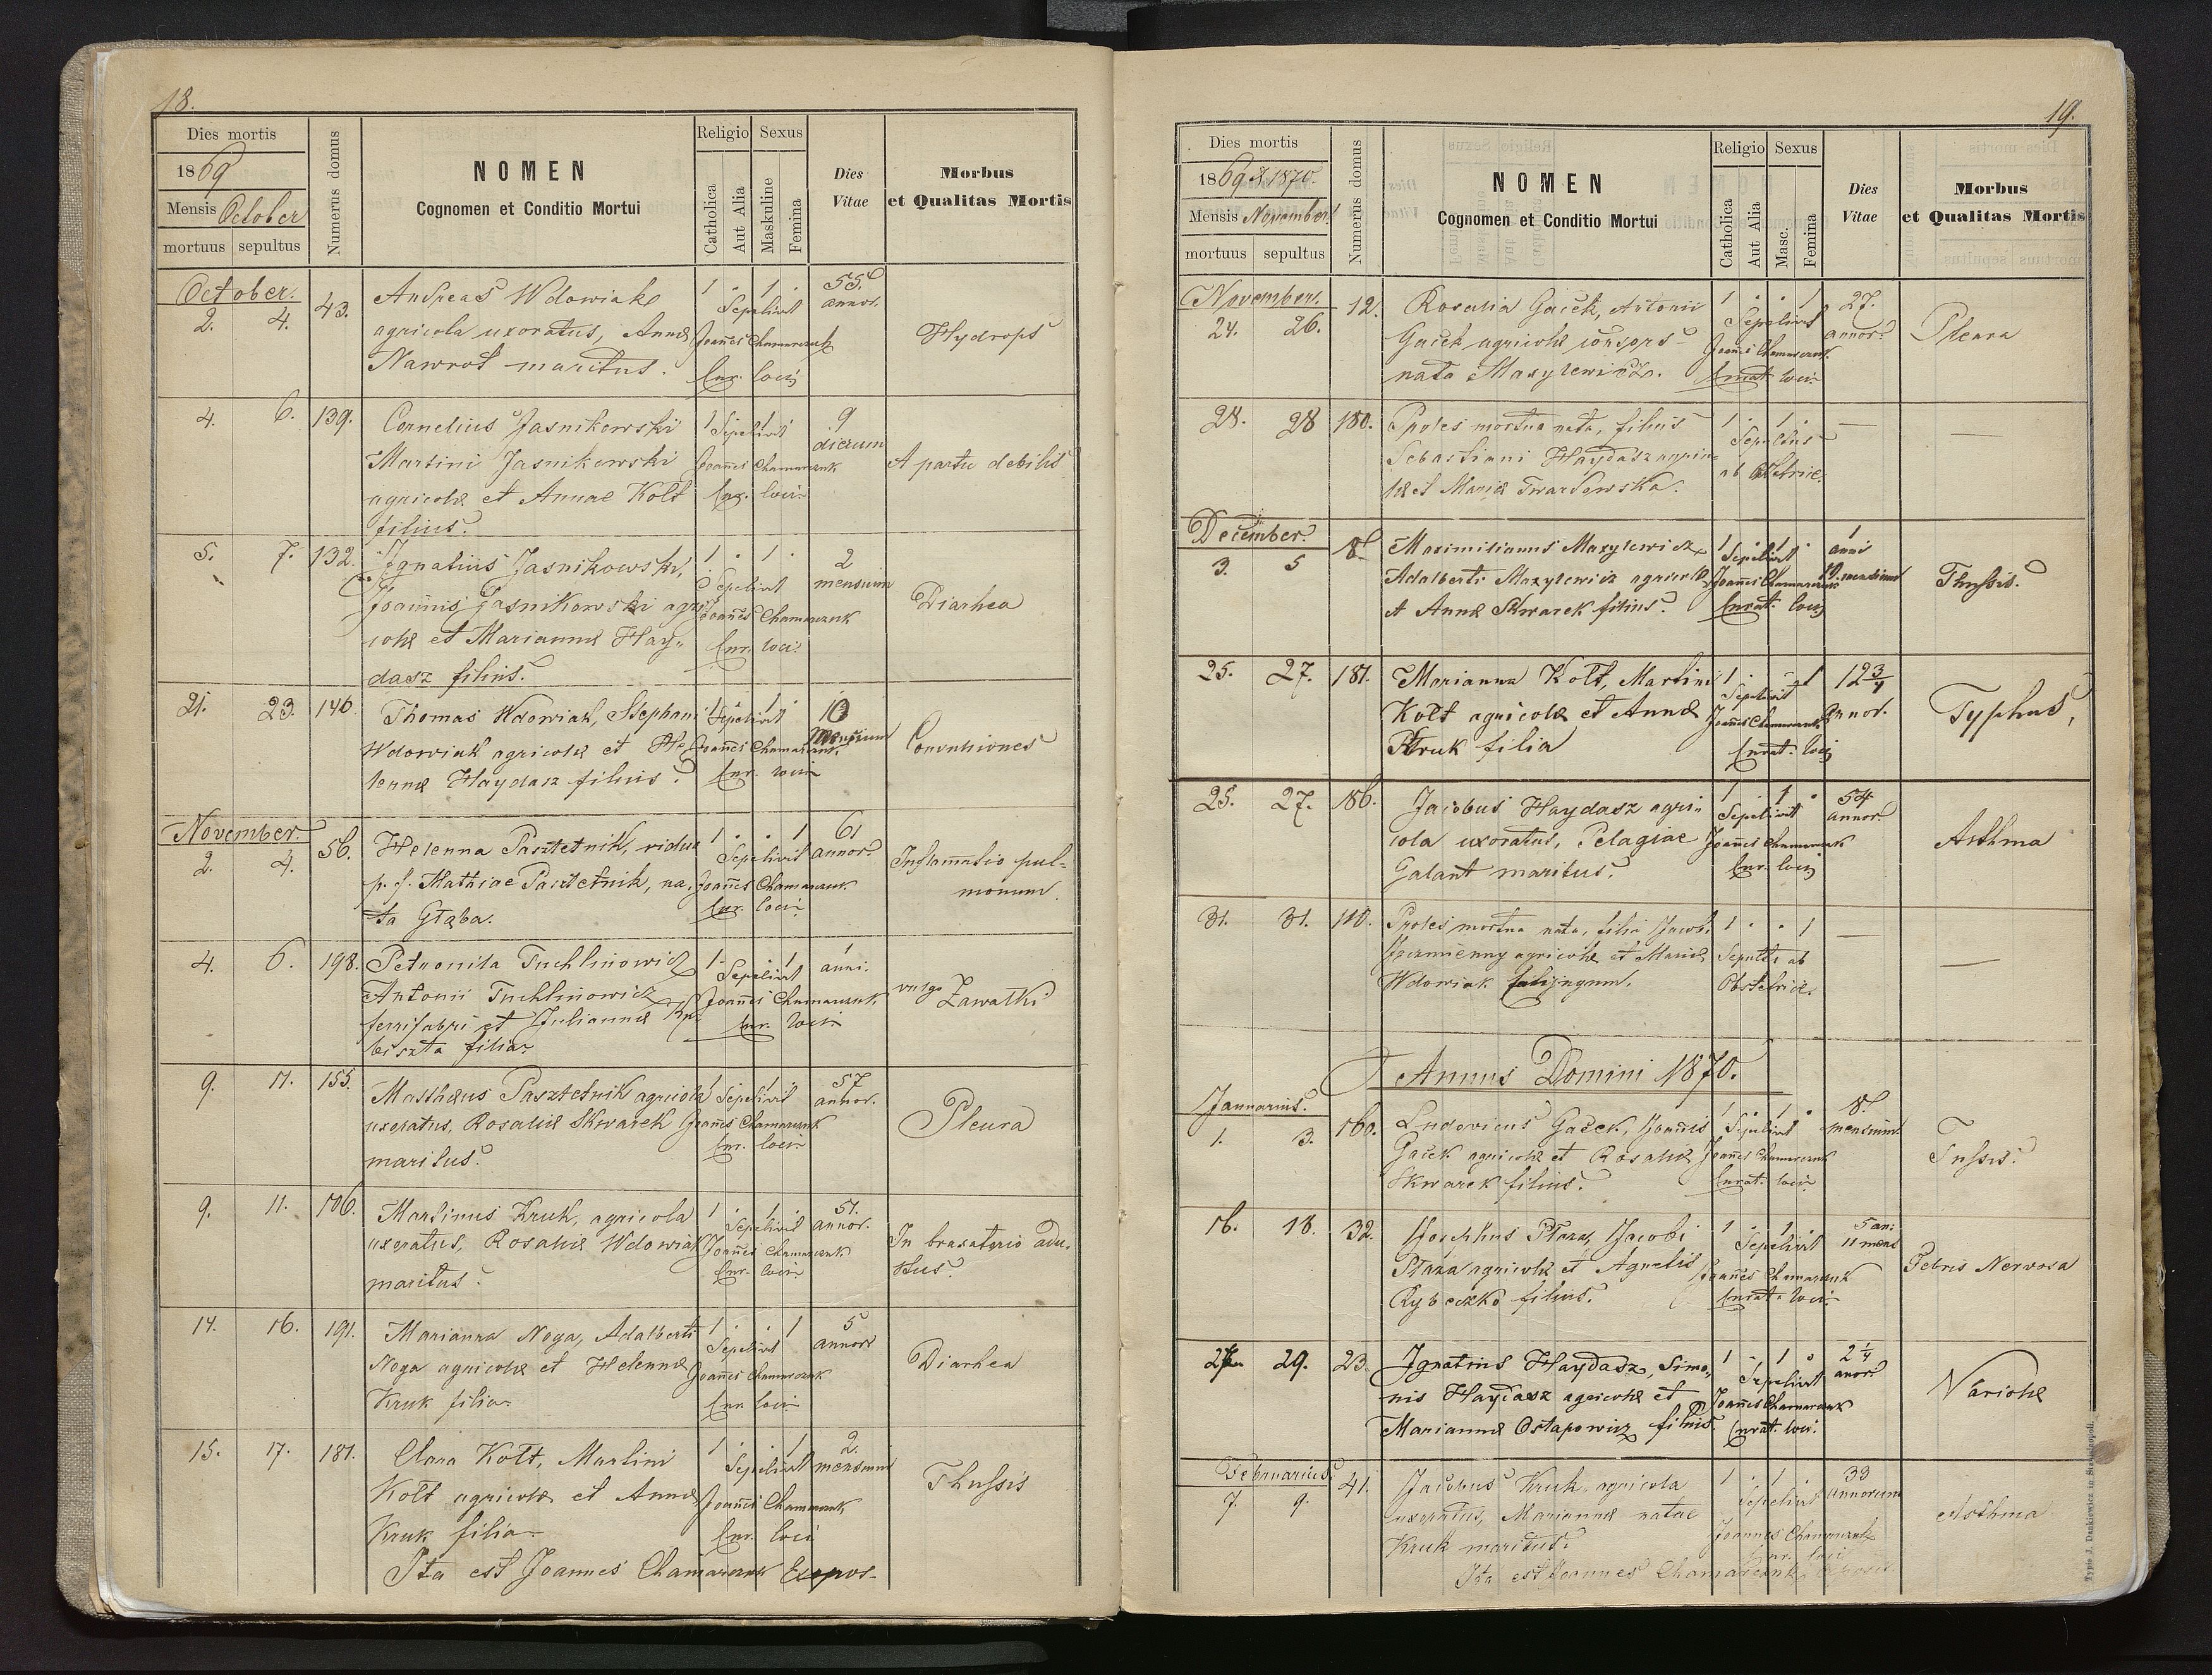 18.
Dies mortis
1869
Mensis October
mortuus sepultus
Numerus domus
NOMEN
Cognomen et Conditio Mortui
Religio Sexus
Catholica
Aut Alia
Maskuline
Femina
Dies
Vitae
Morbus
et Qualitas Mortis
October.
2. 4. 43.
Andreas Wdowiak
agricola uxoratus, Annæ
Nawrot maritus.
1 . 1 .
Sepelivit
Joannes Chamarczuk
Cur. loci
55
annor.
Hydrops
4. 6. 139.
Cornelius Jasnikowski
Martini Jasnikowski
agricolæ et Annae Kolt
filius.
1 . 1 .
Sepelivit
Joannes Chamarczuk
Cur. loci
9
dierum
A partu debilis
5. 7. 132.
Ignatius Jasnikowski,
Joannis Jasnikowski agri
colæ et Mariannæ Hay-
dasz filius.
1 . 1 .
Sepelivit
Joannes Chamarczuk
Cur. loci.
2
mensium
Diarhea
21. 23. 146.
Thomas Wdowiak, Stephani
Wdowiak agricolæ et He
lennæ Haydasz filius.
1 . 1 .
Sepelivit
Joannes Chamarczuk
Cur. loci
10
Mensium
Convulsiones
November.
2. 4. 56.
Helenna Pasztetnik, vidua
p. f. Mathiae Pasztetnik, na-
ta Głąba.
1 . . 1
Sepelivit
Joannes Chamarczuk
Cur. loci
61
annor.
Inflamatio pul-
monum.
4. 6. 198.
Petronila Tuchlinowicz
Antonii Tuchlinowicz
ferrifabri et Juliannæ Ry
biszta filia.
Sepelivit
Joannes Chamarczuk
Cur. loci
1
anni.
vulgo Zawałki
9. 11. 155.
Mathæus Pasztetnik agricola
uxoratus, Rosaliæ Skwarek
maritus.
Sepelivit
Joannes Chamarczuk
Cur. loci
57
annor.
Pleura
9. 11. 106.
Martinus Kruk, agricola
uxoratus, Rosaliæ Wdowiak
maritus.
1 . 1 .
Sepelivit
Joannes Chamarczuk
Cur. loci
51.
annor.
In braxatorio adu-
stus.
14. 16. 191.
Marianna Noga, Adalberti
Noga agricolæ et Helennæ
Kruk filia.
1 . . 1
Sepelivit
Joannes Chamarczuk
Cur loci
5
annor
Diarhea
15. 17. 181.
Clara Kolt, Martini
Kolt agricolæ et Annæ
Kruk filia.
Sepelivit
Joannes Chamarczuk
Cur. loci
2.
mensium
Thussis
Ita est Joannes Chamarczuk Expos.
19.
Dies mortis
1869 & 1870.
Mensis November
mortuus sepultus
Numerus domus
NOMEN
Cognomen et Conditio Mortui
Religio Sexus
Catholica
Aut Alia
Masc.
Femina
Dies
Vitae
Morbus
et Qualitas Mortis
November.
24. 26. 12.
Rosalia Gaček, Antonii
Gaček agricolæ consors
nata Maxylewicz.
1 . . 1
Sepelivit
Joannes Chamarczuk
Curat. loci
27.
annor.
Pleura
28. 28 180.
Proles mortua nata, filius
Sebastiani Haydasz agrico
læ et Mariæ Twardowska.
1 . 1 .
Sepultus
ab obstetrice
—
—
December.
3. 5 8
Maximilianus Maxylewicz
Adalberti Maxylewicz agricolæ
et Annæ Skwarek filius.
1 . 1 .
Sepelivit
Joannes Chamarczuk
Curat. loci
1
anni
10. mensium
Thussis.
25. 27. 181.
Marianna Kolt, Martini
Kolt agricolæ et Annæ
Kruk filia
Sepelivit
Joannes Chamarczuk
Curat. loci
12 3/4
annor.
Typhus,
25. 27. 186.
Jacobus Haydasz agri-
cola uxoratus, Pelagiae
Galant maritus.
1 . 1 .
Sepelivit
Joannes Chamarczuk
Cur. loci
54
annor.
Asthma
31. 31. 110.
Proles mortua nata, filia Jacobi
agricolæ et Mariæ
Wdowiak
1 . . 1
Sepulta ab
Obstetrice.
—
—
Annus Domini 1870.
Januarius.
1. 3. 160.
Ludovicus Gaček, Joannis
Gaček agricolæ et Rosaliæ
Skwarek filius.
1 . 1 .
Sepelivit
Joannes Chamarczuk
Curat. loci
8.
mensium
Tussis.
16. 18. 32.
Josephus Płaza, Jacobi
Płaza agricolæ et Agnetis
Rybeczko filius.
1 . 1 .
Sepelivit
Joannes Chamarczuk
Curat. loci
5 an:
11 mens
Febris Nervosa
27. 29. 23.
Ignatius Haydasz, Simo-
nis Haydasz agricolæ et
Mariannæ Ostapowicz filius.
1 . 1 .
Sepelivit
Joannes Chamarczuk
Curat. loci.
2 1/4
anor.
Variolæ
Februarius.
7. 9. 41.
Jacobus Kruk agricola
uxoratus, Mariannæ natae
Kruk maritus.
1 . 1 .
Sepelivit
Joannes Chamarczuk
Cur. loci
33
annorum
Asthma
Ita est Joannes Chamarczuk
Typis J. Dankiewicz in Stanislaopoli.